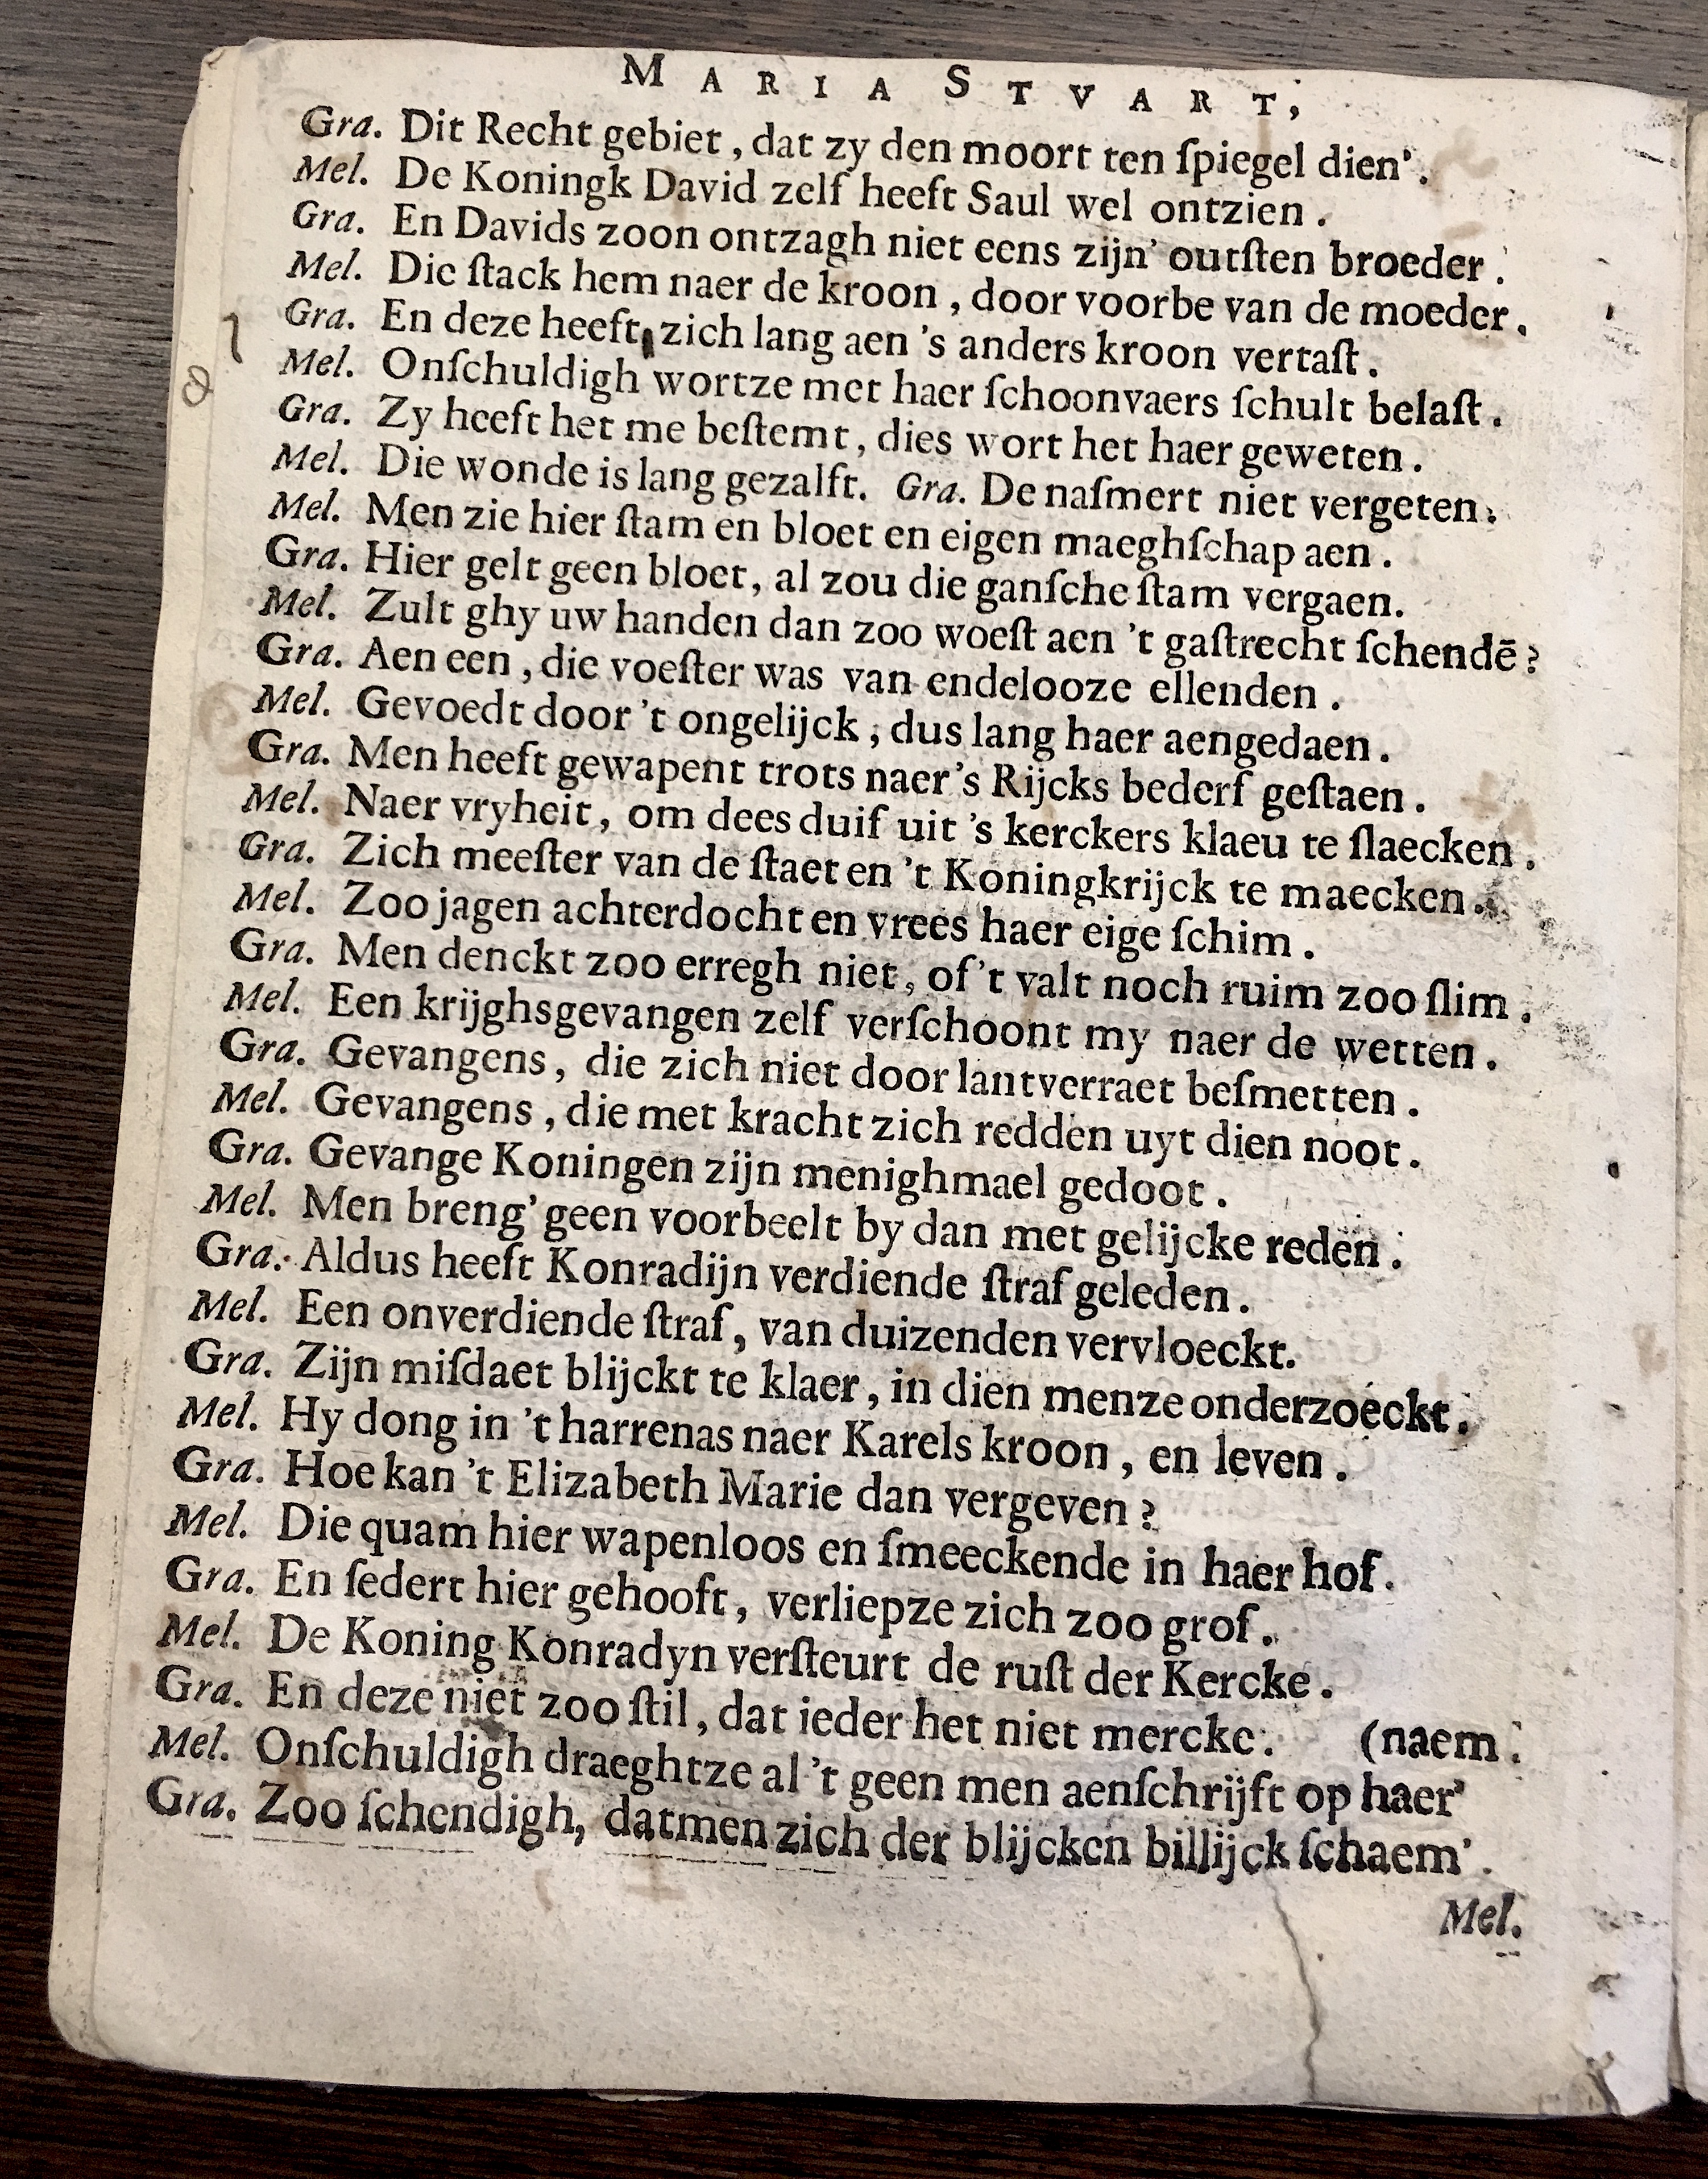 MARIA STVART,
Gra. Dit Recht gebiet, dat zy den moort ten ſpiegel dien'.
Mel. De Koningk David zelf heeft Saul wel ontzien.
Gra. En Davids zoon ontzagh niet eens zijn' outſten broeder.
Mel. Die ſtack hem naer de kroon, door voorbe van de moeder.
Gra. En deze heeft zich lang aen 's anders kroon vertaſt.
Mel. Onſchuldigh wortze met haer ſchoonvaers ſchult belaſt.
Gra. Zy heeft het me beſtemt, dies wort het haer geweten.
Mel. Die wonde is lang gezalft. Gra. De naſmert niet vergeten.
Mel. Men zie hier ſtam en bloet en eigen maeghſchap aen.
Gra. Hier gelt geen bloet, al zou die ganſche ſtam vergaen.
Mel. Zult ghy uw handen dan zoo woeſt aen 't gaſtrecht ſchendē?
Gra. Aen een, die voeſter was van endelooze ellenden.
Mel. Gevoedt door 't ongelijck, dus lang haer aengedaen.
Gra. Men heeft gewapent trots naer 's Rijcks bederf geſtaen.
Mel. Naer vryheit, om dees duif uit 's kerckers klaeu te ſlaecken.
Gra. Zich meeſter van de ſtaet en 't Koningkrijck te maecken.
Mel. Zoo jagen achterdocht en vrees haer eige ſchim.
Gra. Men denckt zoo erregh niet, of 't valt noch ruim zoo ſlim.
Mel. Een krijghsgevangen zelf verſchoont my naer de wetten.
Gra. Gevangens, die zich niet door lantverraet beſmetten.
Mel. Gevangens, die met kracht zich redden uyt dien noot.
Gra. Gevange Koningen zijn menighmael gedoot.
Mel. Men breng' geen voorbeelt by dan met gelijcke reden.
Gra. Aldus heeft Konradijn verdiende ſtraf geleden.
Mel. Een onverdiende ſtraf, van duizenden vervloeckt.
Gra. Zijn miſdaet blijckt te klaer, in dien menze onderzoeckt.
Mel. Hy dong in 't harrenas naer Karels kroon, en leven.
Gra. Hoe kan 't Elizabeth Marie dan vergeven?
Mel. Die quam hier wapenloos en ſmeeckende in haer hof.
Gra. En ſedert hier gehooft, verliepze zich zoo grof.
Mel. De Koning Konradyn verſteurt de ruſt der Kercke.
Gra. En deze niet zoo ſtil, dat ieder het niet mercke. (naem.
Mel. Onſchuldigh draeghtze al 't geen men aenſchrijft op haer'
Gra. Zoo ſchendigh, datmen zich der blijcken billijck ſchaem'.
Mel.